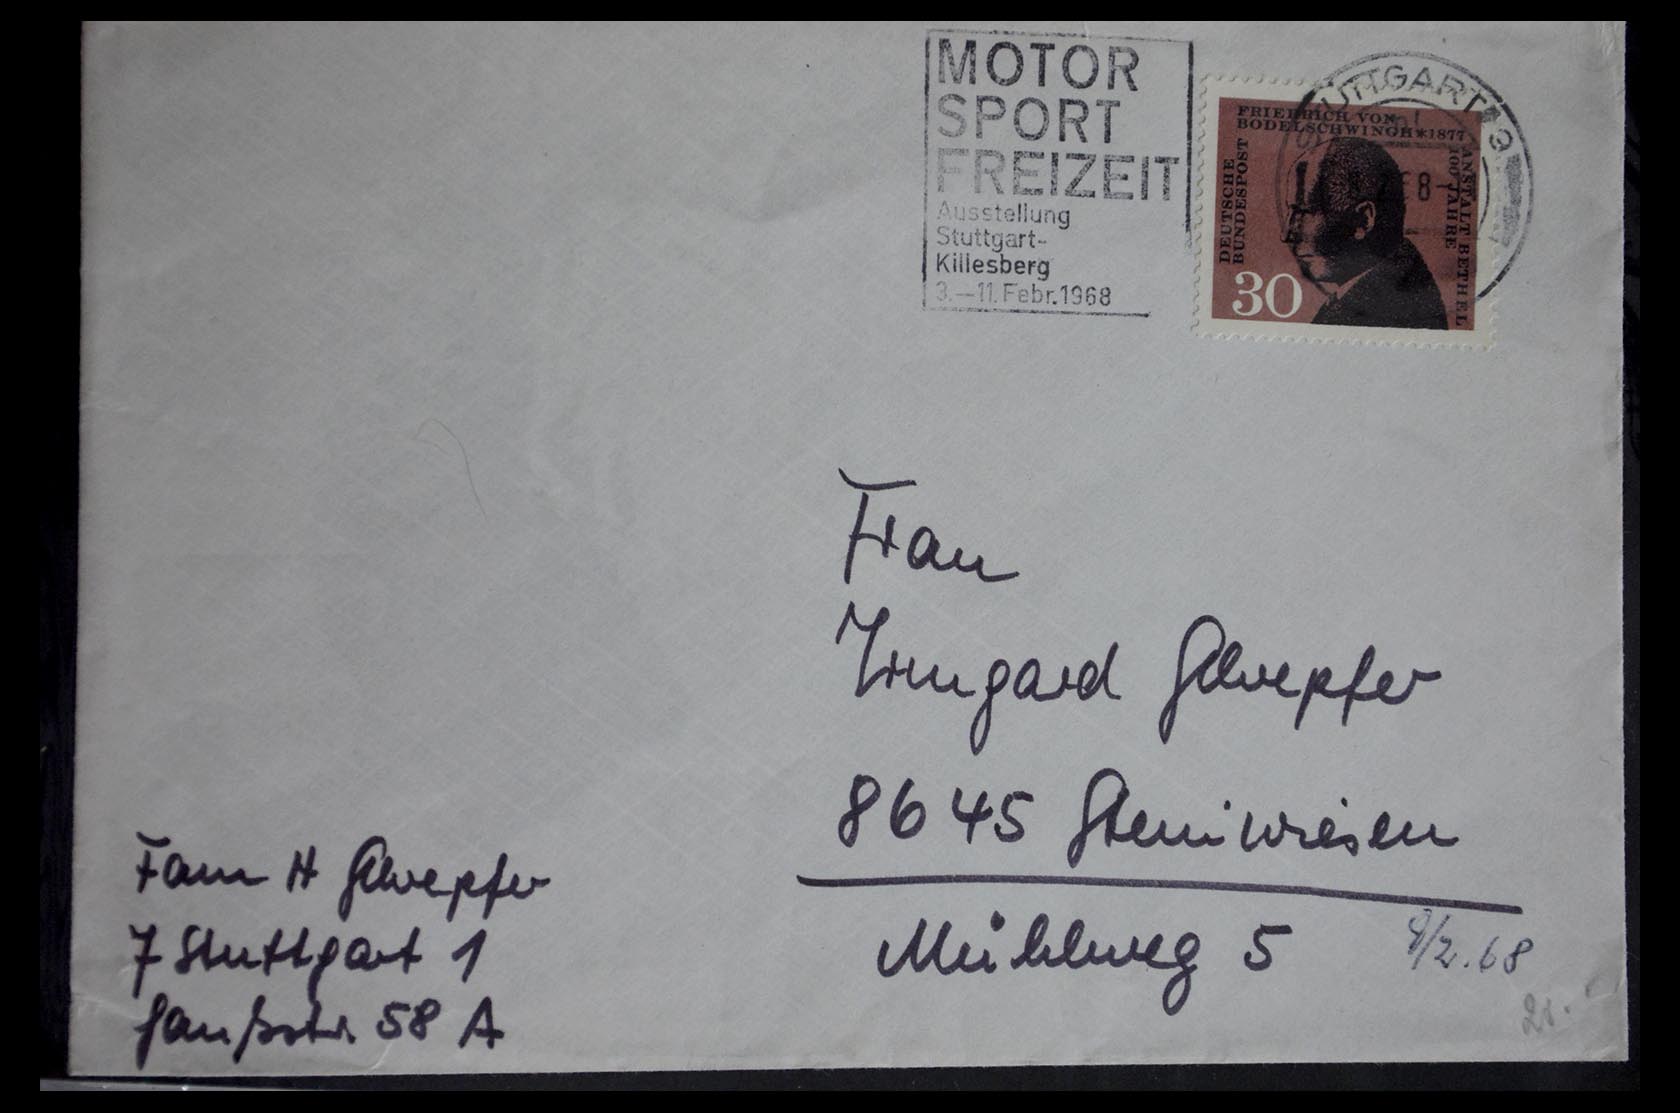 MOTOR
SPORT
FREIZEIT
Ausstellung
Stuttgart-
Killesberg
3.–11. Febr. 1968
STUTTGART
FRIEDRICH VON
BODELSCHWINGH*1877
DEUTSCHE
BUNDESPOST
100 JAHRE
ANSTALT BETHEL
30
Frau
Irmgard
8645 Steinwiesen
Mühlweg 5
8/2.68
H
7 Stuttgart 1
Gaußstr. 58 A